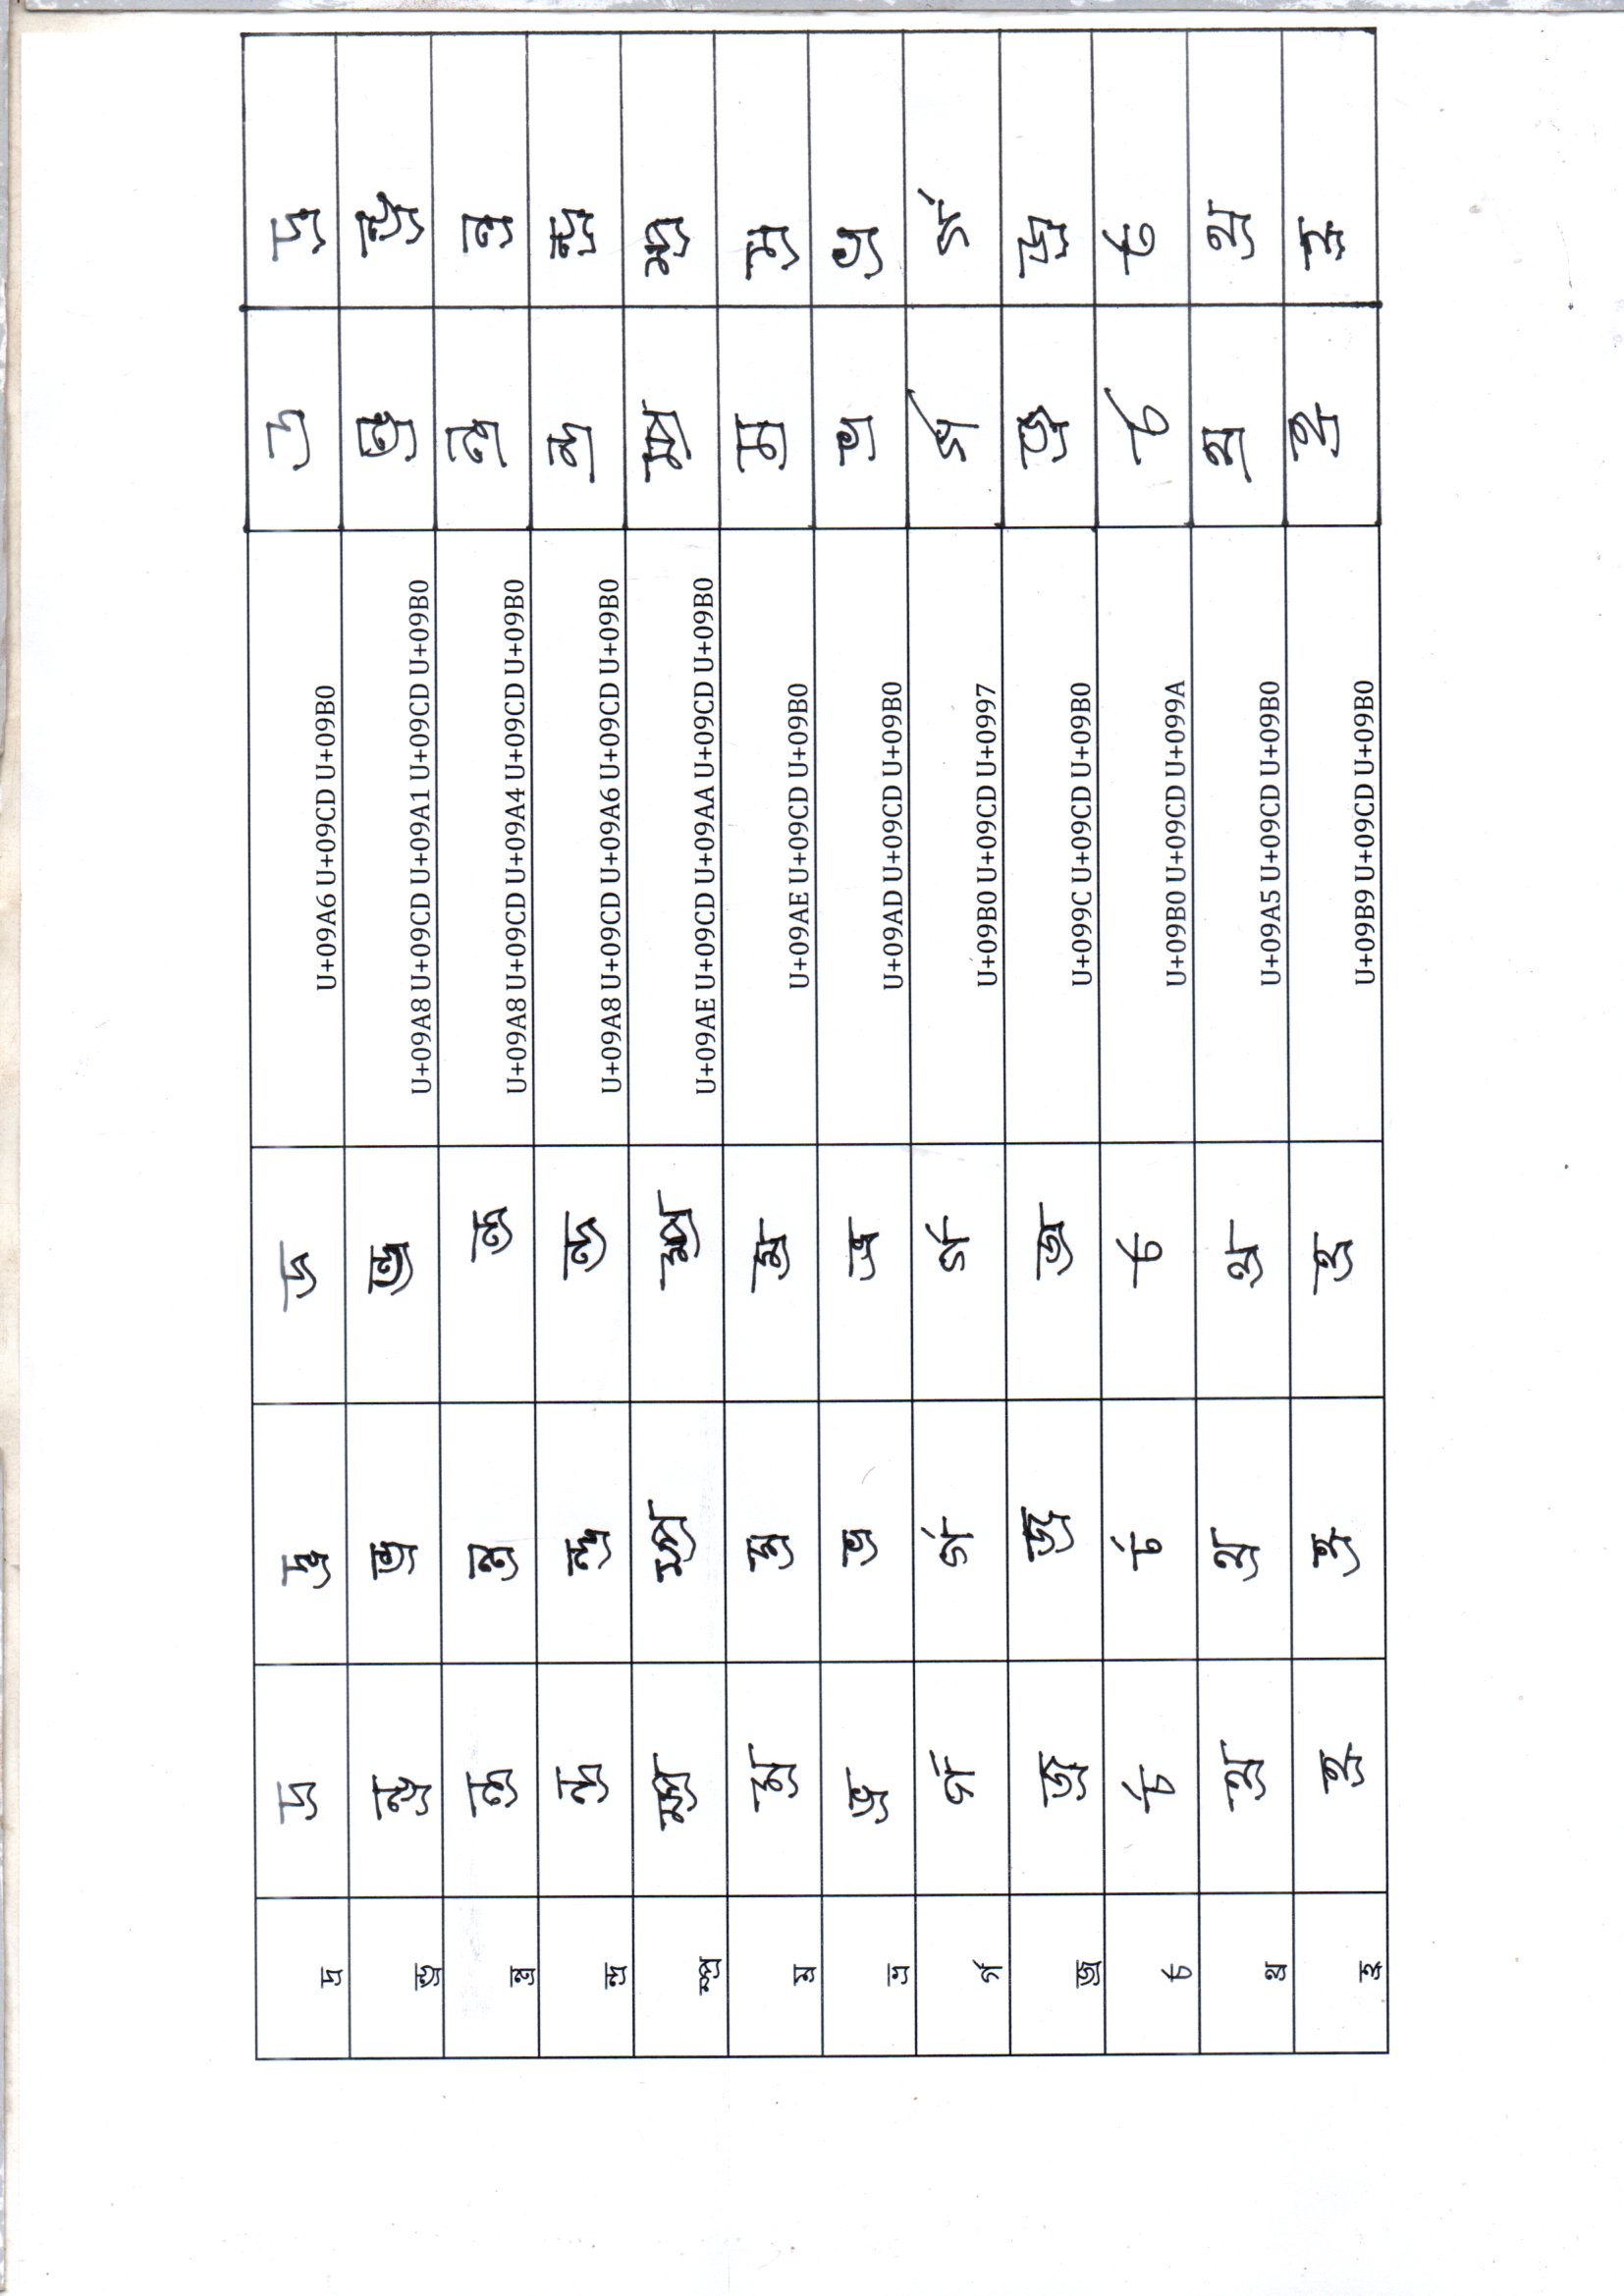 দ্র দ্র দ্র দ্র U+09A6 U+09CD U+09B0 দ্র দ্র
ন্ড্র ন্ড্র ন্ড্র ন্ড্র U+09A8 U+09CD U+09A1 U+09CD U+09B0 ন্ড্র ন্ড্র
ন্ত্র ন্ত্র ন্ত্র ন্ত্র U+09A8 U+09CD U+09A4 U+09CD U+09B0 ন্ত্র ন্ত্র
ন্দ্র ন্দ্র ন্দ্র ন্দ্র U+09A8 U+09CD U+09A6 U+09CD U+09B0 ন্দ্র ন্দ্র
ম্প্র ম্প্র ম্প্র ম্প্র U+09AE U+09CD U+09AA U+09CD U+09B0 ম্প্র ম্প্র
ম্র ম্র ম্র ম্র U+09AE U+09CD U+09B0 ম্র ম্র
ভ্র ভ্র ভ্র ভ্র U+09AD U+09CD U+09B0 ভ্র ভ্র
র্গ র্গ র্গ র্গ U+09B0 U+09CD U+0997 র্গ র্গ
জ্র জ্র জ্র জ্র U+099C U+09CD U+09B0 জ্র জ্র
র্চ র্চ র্চ র্চ U+09B0 U+09CD U+099A র্চ র্চ
থ্র থ্র থ্র থ্র U+09A5 U+09CD U+09B0 থ্র থ্র
হ্র হ্র হ্র হ্র U+09B9 U+09CD U+09B0 হ্র হ্র